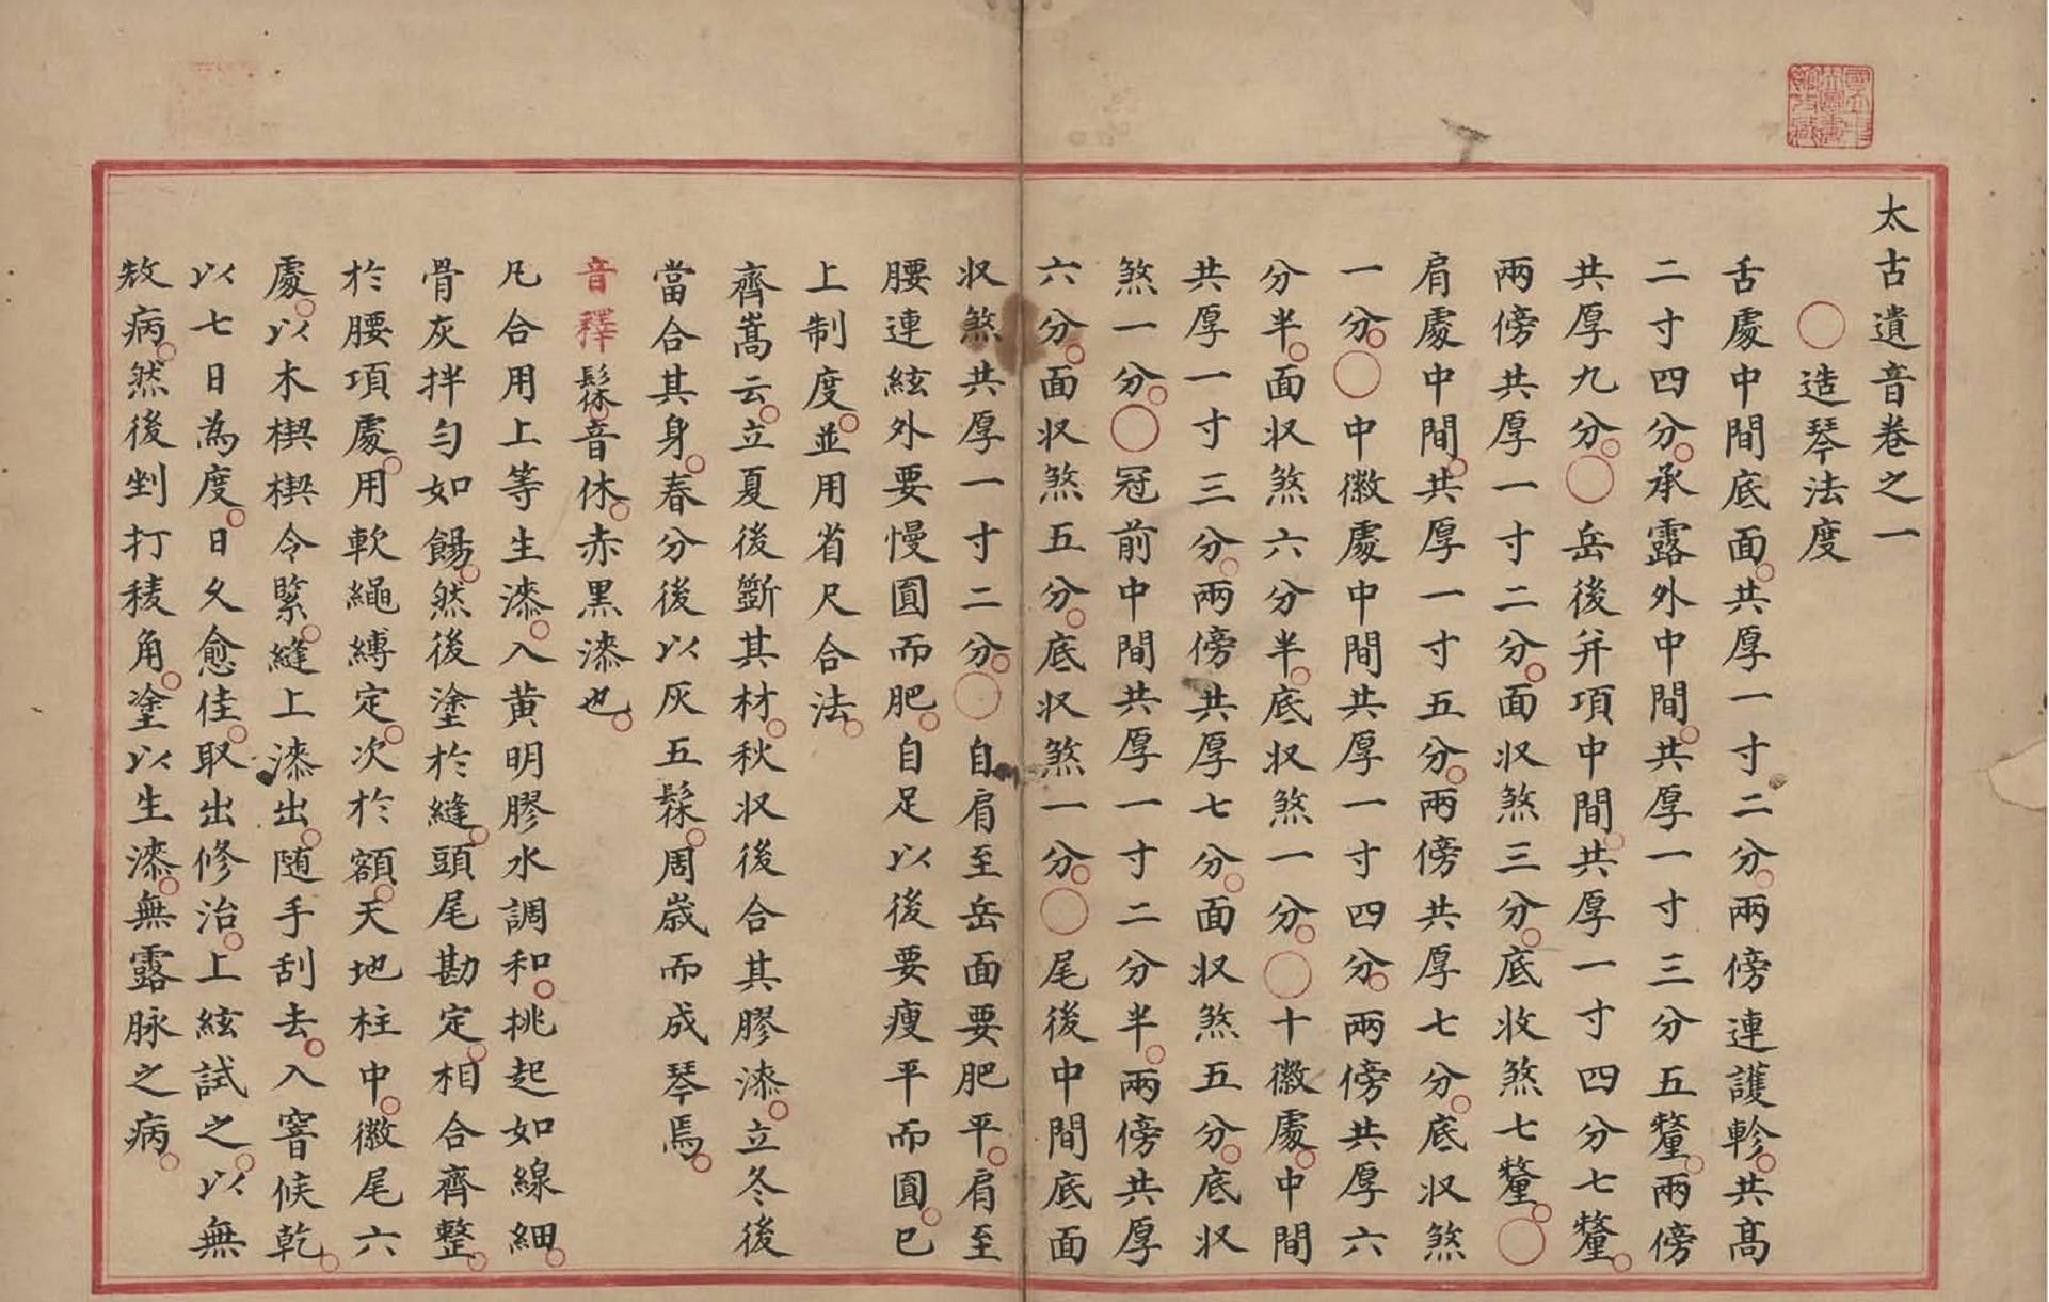 太古遺音卷之一
○造琴法度
舌處中間底面。共厚一寸二分。兩傍連護軫。共高
二寸四分。承露外中間。共厚一寸三分五釐。兩傍
共厚九分。○岳後并項中間。共厚一寸四分七釐。
兩傍共厚一寸二分。面収煞三分。底收煞七釐。○
肩處中間。共厚一寸五分。兩傍共厚七分。底収煞
一分。○中徽處中間共厚一寸四分。兩傍共厚六
分半。面収煞六分半。底収煞一分。○十徽處。中間
共厚一寸三分。兩傍共厚七分。面収煞五分。底収
煞一分。○冠前中間共厚一寸二分半。兩傍共厚
六分。面収煞五分。底収煞一分。○尾後中間底面
収煞共厚一寸二分。○自肩至岳面要肥平。肩至
腰連絃外要慢圓而肥。自足以後要瘦平而圓。巳
上制度。並用省尺合法。
齊嵩云。立夏後斵其材。秋収後合其膠漆。立冬後
當合其身。春分後以灰五髹。周歲而成琴焉。
音釋 髹。音休。赤黑漆也。
凡合用上等生漆。入黄明膠水調和。挑起如線細。
骨灰拌匀如餳。然後塗於縫。頭尾勘定。相合齊整。
於腰項處。用軟繩縛定。次於額。天地柱中。徽尾六
處。以木楔楔令緊。縫上漆出。随手刮去。入窨候乾。
以七日為度。日久愈佳。取出修治。上絃試之。以無
敇病。然後剉打稜角。塗以生漆。無露脉之病。